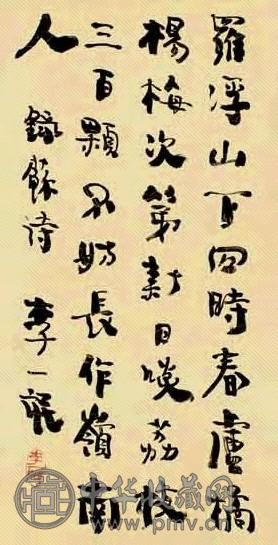 羅浮山下四時春盧橘
楊梅次第新日啖荔枝
三百顆不妨長作嶺南
人 錄蘇詩 李一氓
中华收藏网
www.pmv.cn